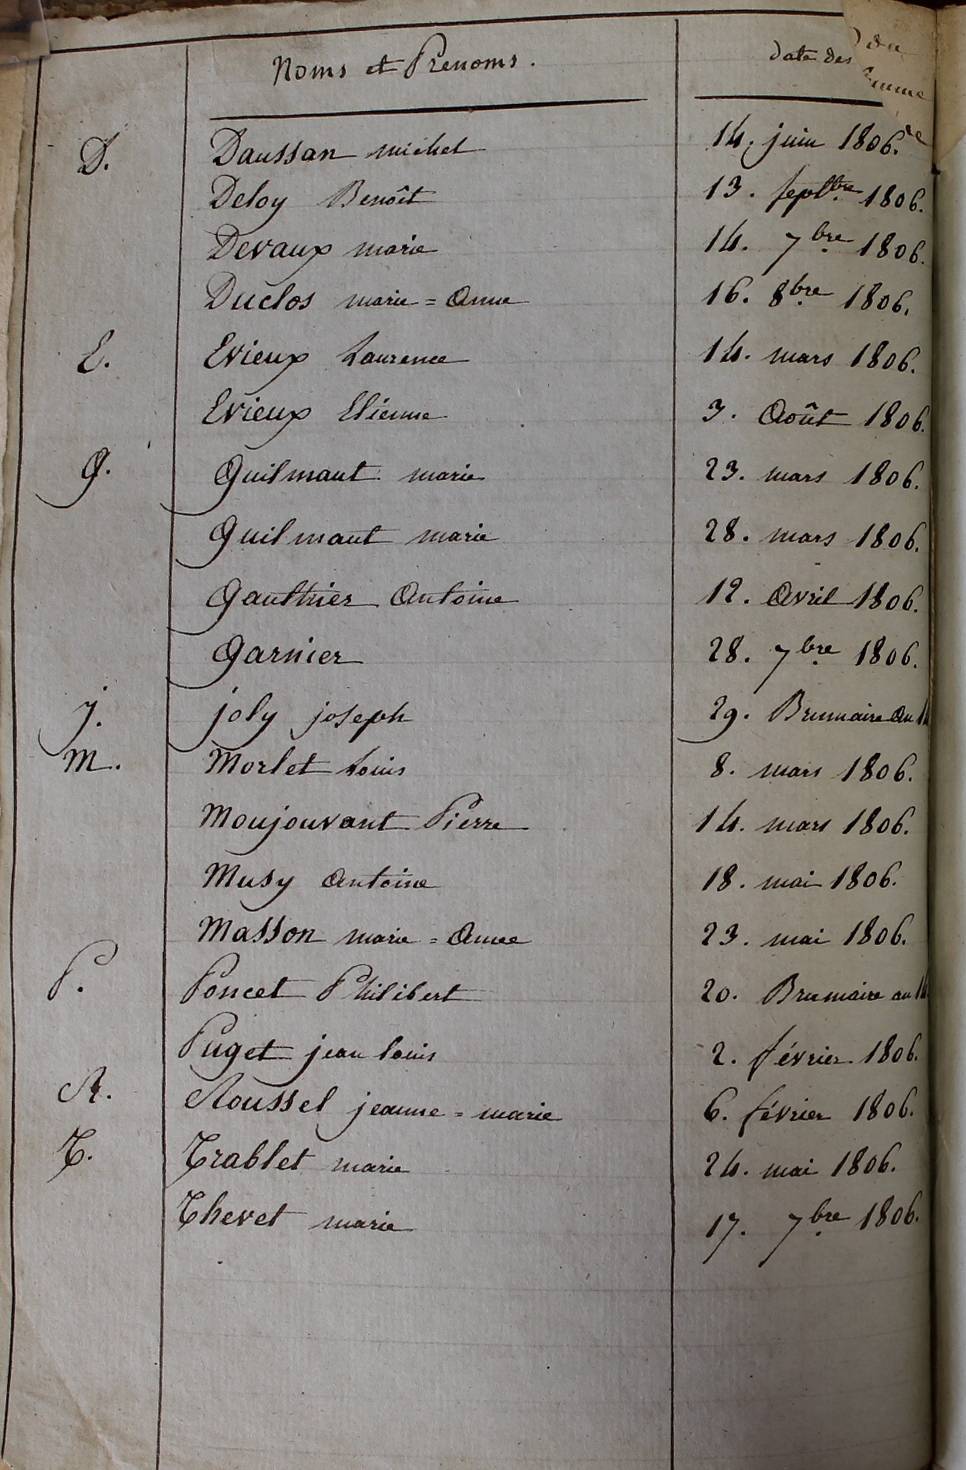 Noms et Prenoms. date des
D. Daussan michel 14. juin 1806.
Deloy Benoît 13. septbre 1806.
Devaux marie 14. 7bre 1806.
Duclos marie = Anne 16. 8bre 1806.
E. Evieux Laurence 14. mars 1806.
Evieux Etienne 3. Août 1806.
G. Guilmaut marie 23. mars 1806.
Guilmaut marie 28. mars 1806.
Gauthier Antoine 12. Avril 1806.
Garnier 28. 7bre 1806.
j. joly joseph 29. Brumaire an 14
M. Morlet Louis 8. mars 1806.
Moujouvant Pierre 14. mars 1806.
Musy Antoine 18. mai 1806.
Masson marie = Anne 23. mai 1806.
P. Poncet Philibert 20. Brumaire an 14
Puget jean Louis 2. février 1806.
R. Roussel jeanne = marie 6. février 1806.
T. Trablet marie 24. mai 1806.
Thevet marie 17. 7bre 1806.